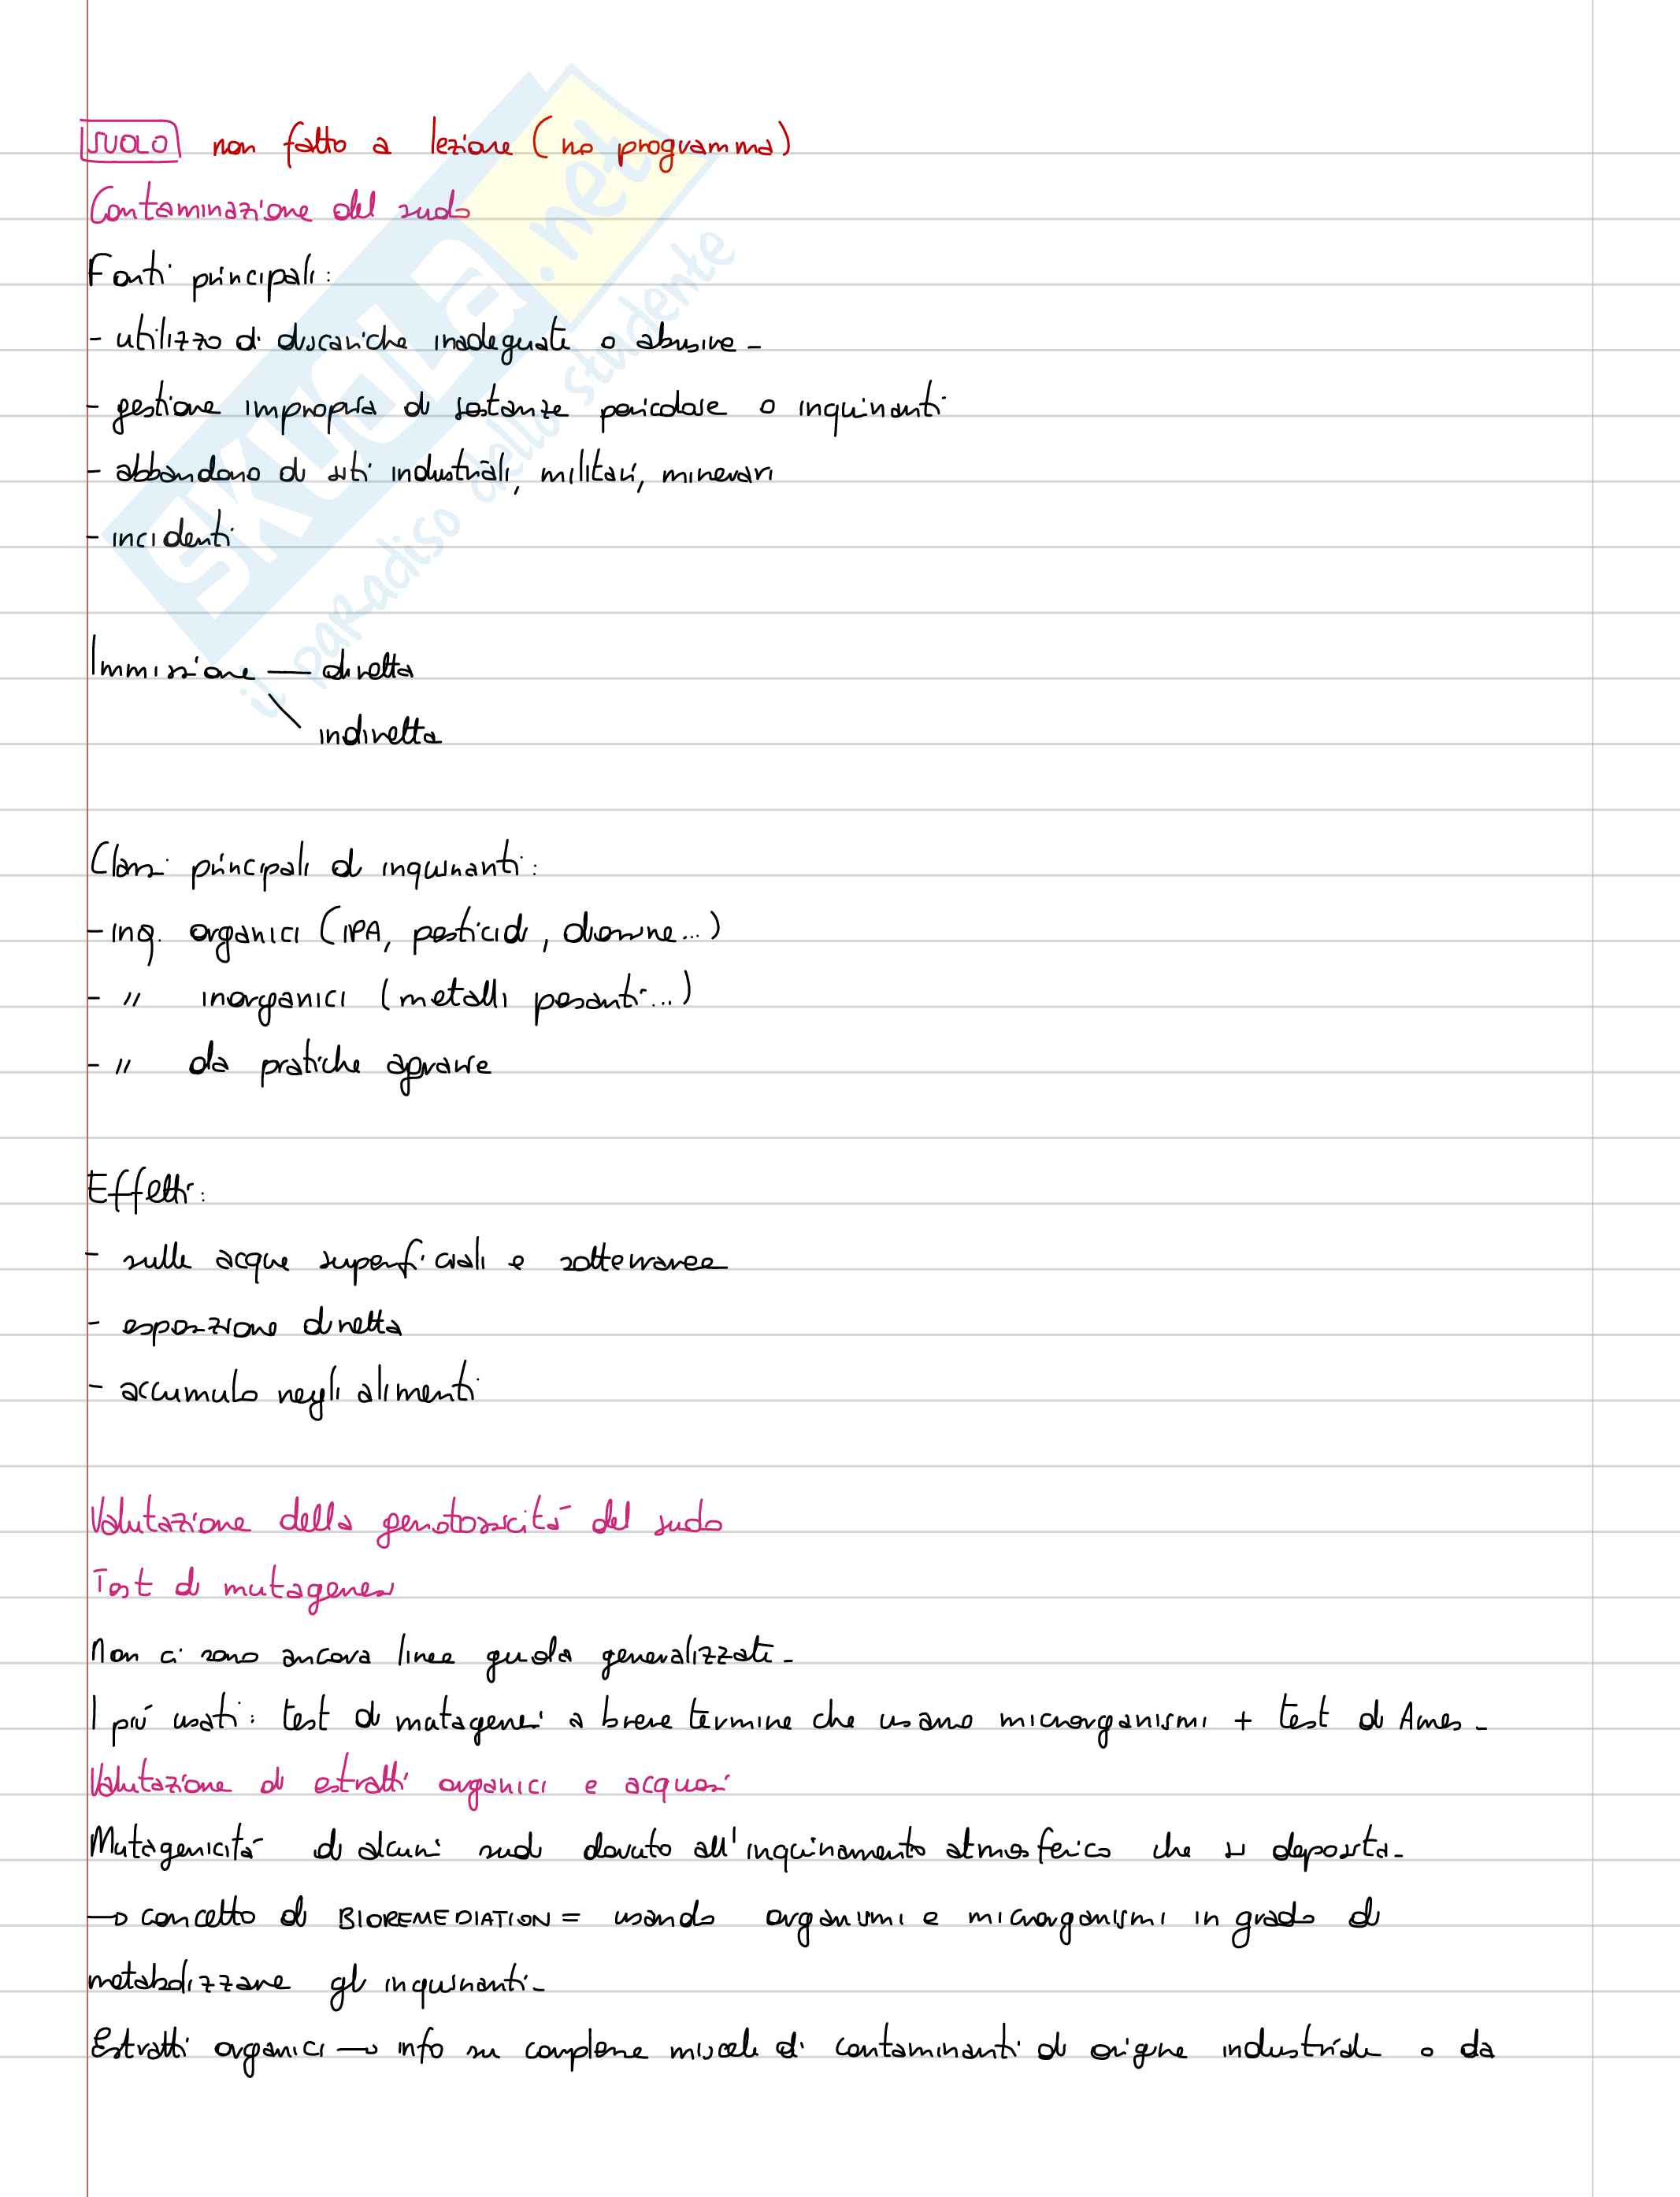 SUOLO non fatto a lezione (no programma)
Contaminazione del suolo
Fonti principali:
- utilizzo di discariche inadeguate o abusive -
- gestione impropria di sostanze pericolose o inquinanti
- abbandono di siti industriali, militari, minerari
- incidenti
Immissione — diretta
\ indiretta
Classi principali di inquinanti:
- inq. organici (IPA, pesticidi, diossine...)
- " inorganici (metalli pesanti...)
- " da pratiche agrarie
Effetti:
- sulle acque superficiali e sotterranee
- esposizione diretta
- accumulo negli alimenti
Valutazione della genotossicità del suolo
Test di mutagenesi
Non ci sono ancora linee guida generalizzate -
I più usati: test di matagenesi a breve termine che usano microrganismi + test di Ames -
Valutazione di estratti organici e acquosi
Mutagenicità di alcuni suoli dovuto all'inquinamento atmosferico che si deposita -
→ concetto di BIOREMEDIATION = usando organismi e microrganismi in grado di
metabolizzare gli inquinanti -
Estratti organici → info su complesse miscele di contaminanti di origine industriale o da
SKUOLA.net
il paradiso dello studente